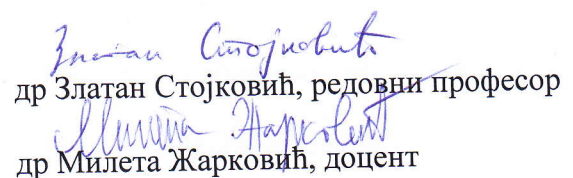 Златан Стојковић
др Златан Стојковић, редовни професор
Милета Жарковић
др Милета Жарковић, доцент